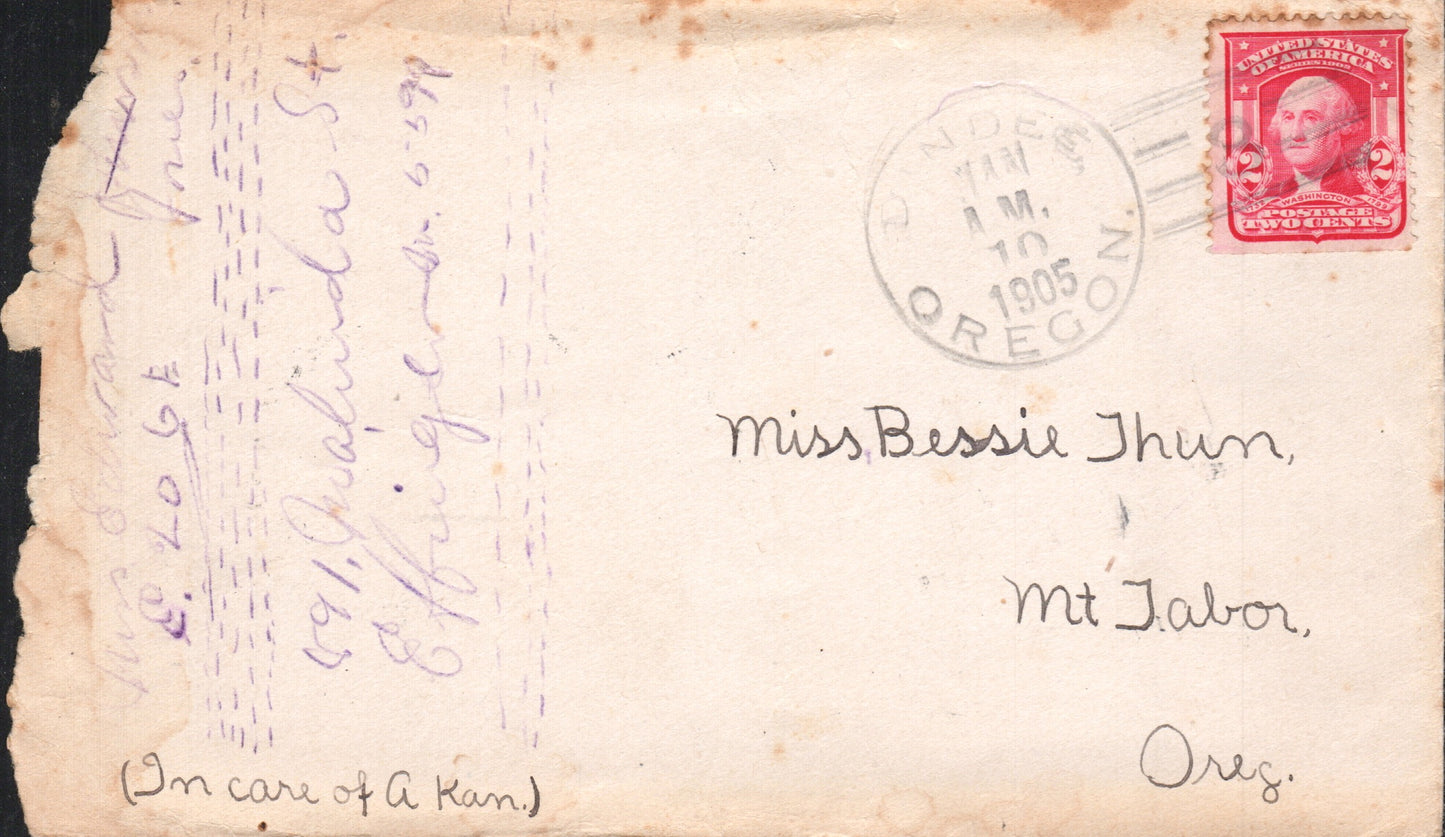 UNITED STATES
OF AMERICA
SERIES 1902
2 2
1732 WASHINGTON 1799
POSTAGE
TWO CENTS
DUNDEE,
JAN
A.M.
10
1905
OREGON.
Miss, Bessie Thun,
Mt Tabor,
Oreg.
(In care of A Kan.)
Edward
E. 20 61
591, St.